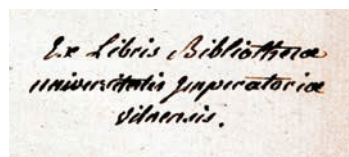 Ex Libris Bibliothecæ
universitatis Imperatoriæ
vilnensis.